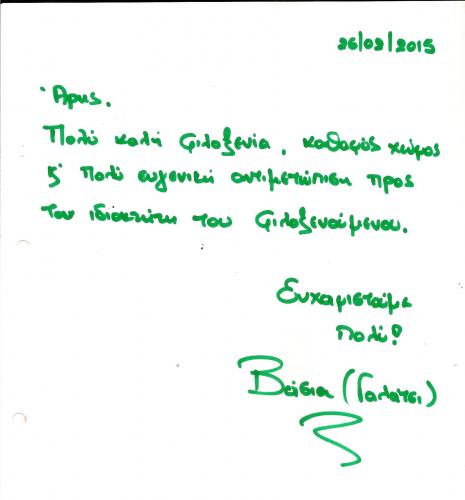 26/02/2015
Άρης.
Πολύ καλή φιλοξενία, καθαρός χώρος
ς' πολύ ευγενική αντιμετώπιση προς
τον ιδιοκτήτη του φιλοξενούμενου.
Ευχαριστούμε
Πολύ!
(Γαλάτσι)